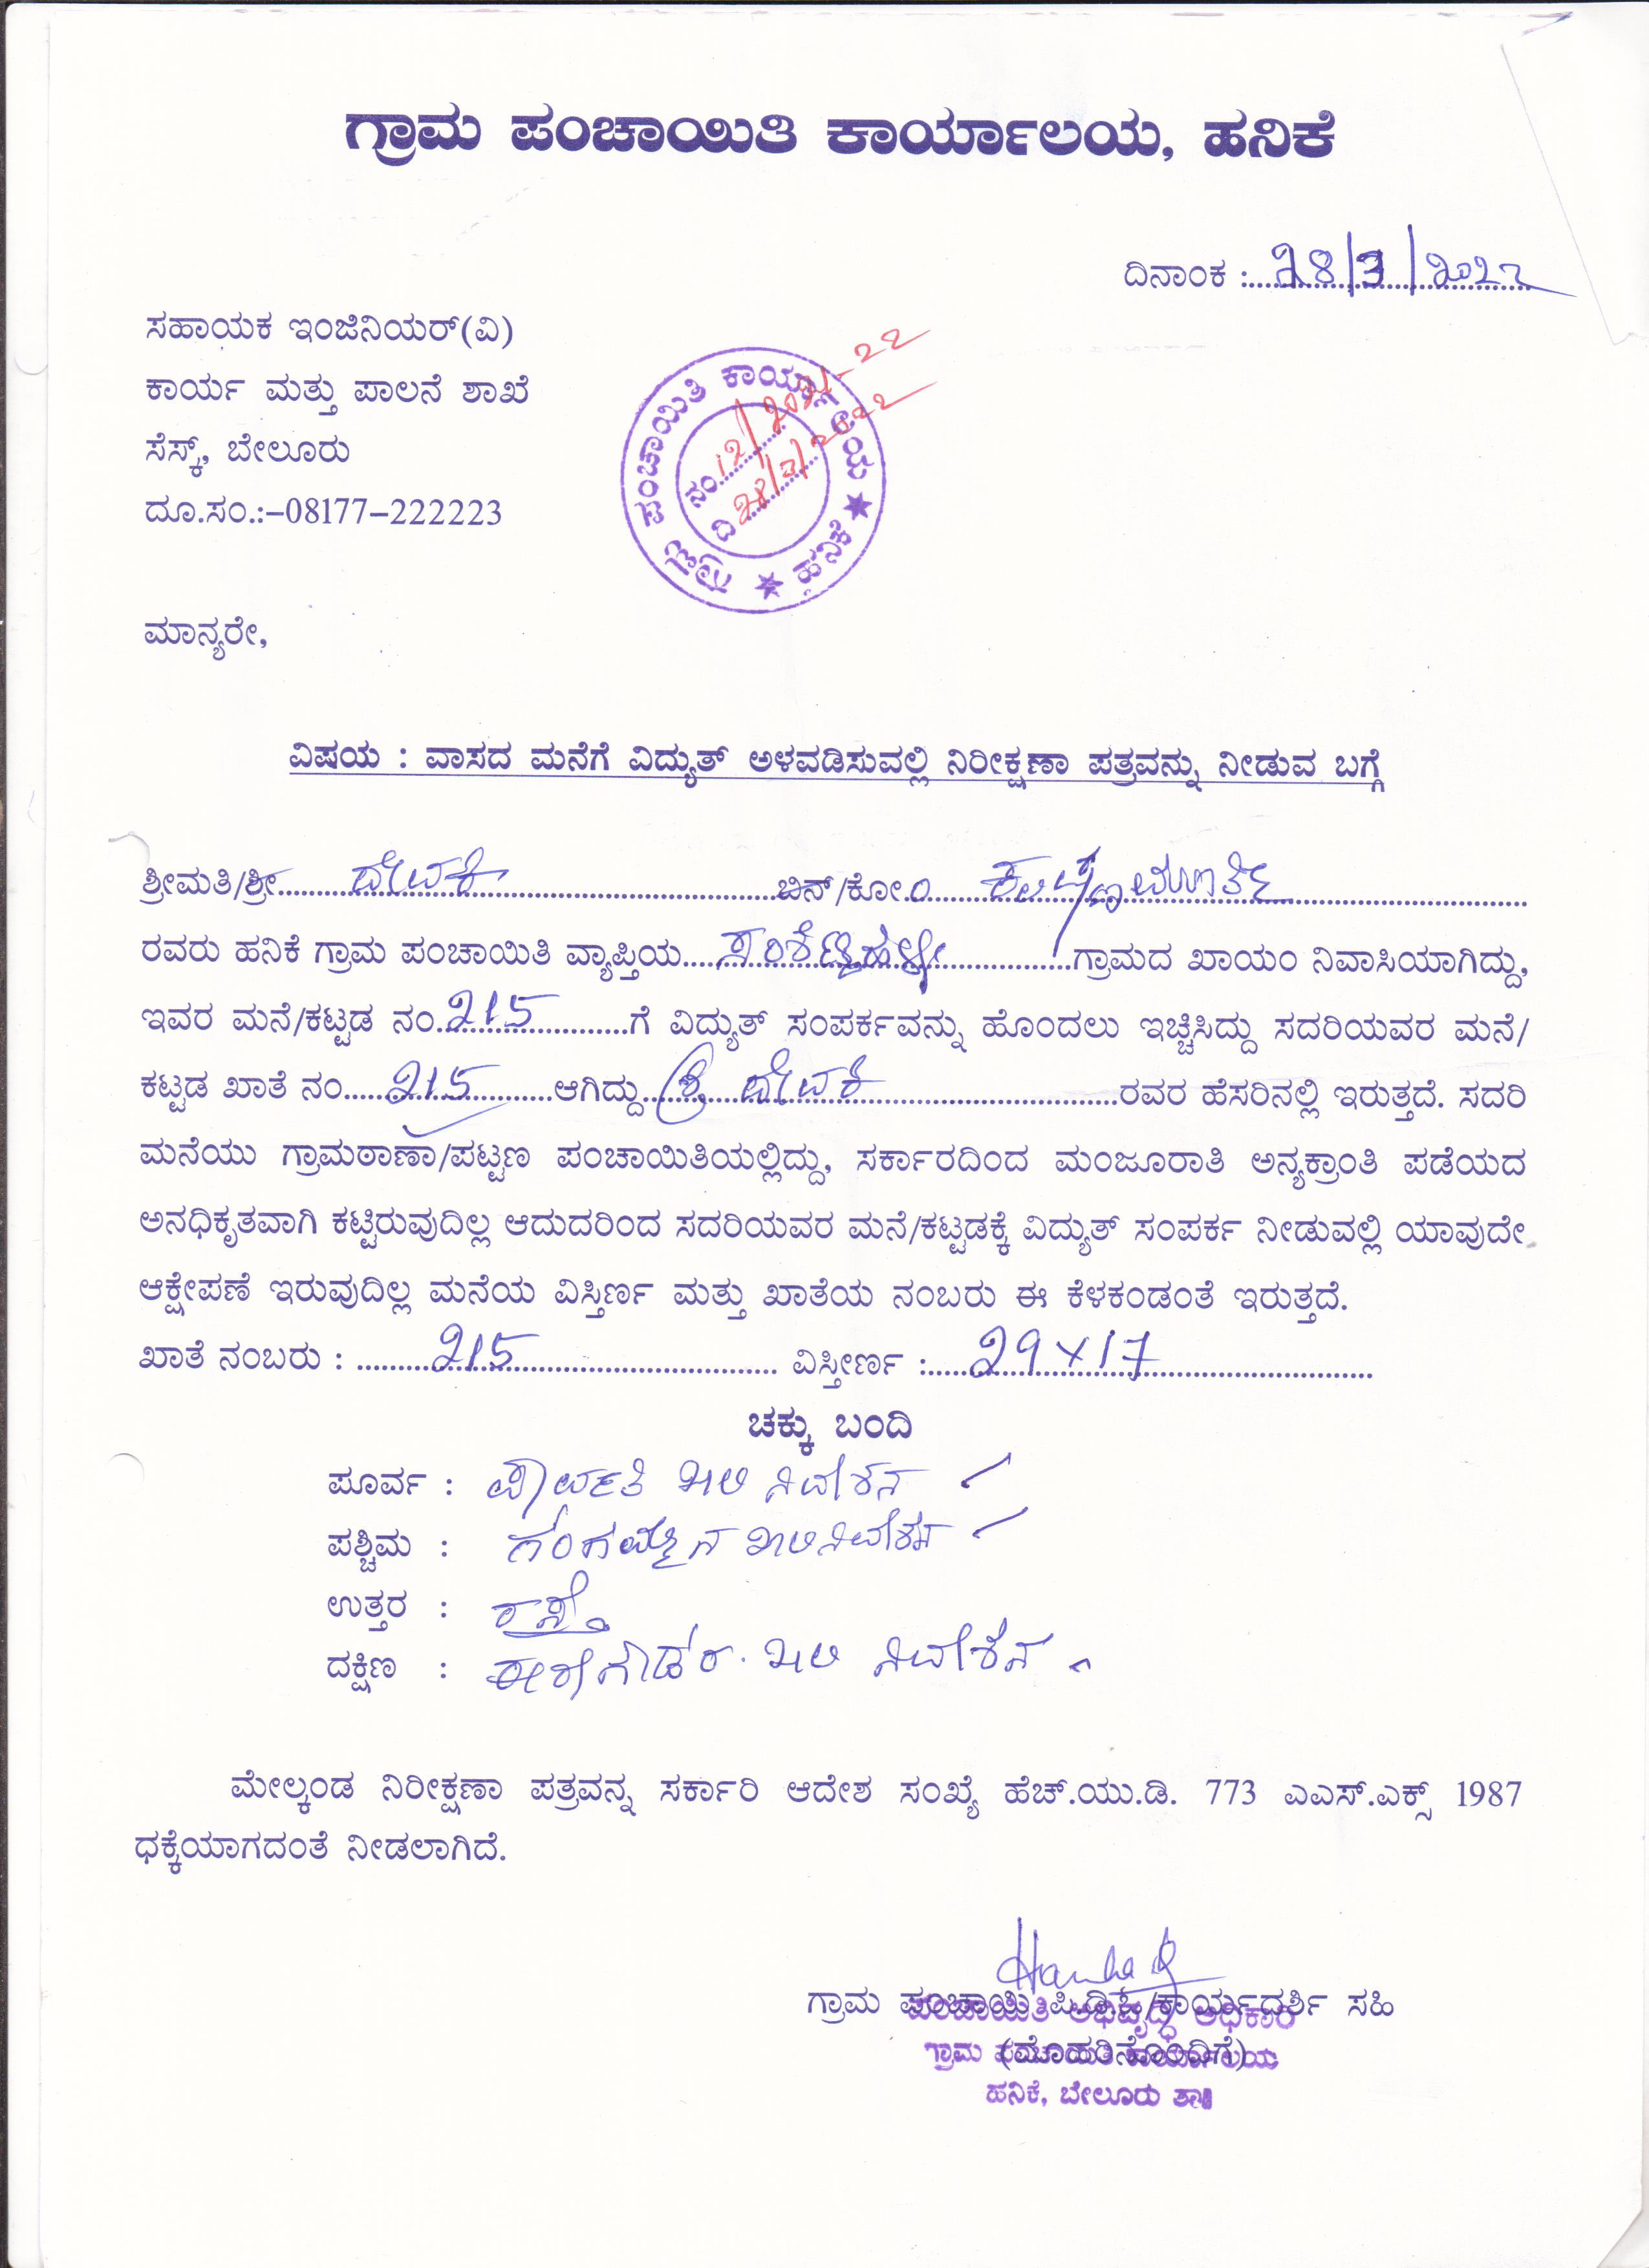 ಗ್ರಾಮ ಪಂಚಾಯಿತಿ ಕಾರ್ಯಾಲಯ, ಹನಿಕೆ
ದಿನಾಂಕ : 28/3/2022
ಸಹಾಯಕ ಇಂಜಿನಿಯರ್(ವಿ)
ಕಾರ್ಯ ಮತ್ತು ಪಾಲನೆ ಶಾಖೆ
ಸೆಸ್ಕ್, ಬೇಲೂರು
ದೂ.ಸಂ.:-08177-222223
ಗ್ರಾಮ ಪಂಚಾಯಿತಿ ಕಾರ್ಯಾಲಯ ★ ಹನಿಕೆ ★
ನಂ. 12/2021-22
ದಿ 28/3/2022
ಮಾನ್ಯರೇ,
ವಿಷಯ : ವಾಸದ ಮನೆಗೆ ವಿದ್ಯುತ್ ಅಳವಡಿಸುವಲ್ಲಿ ನಿರೀಕ್ಷಣಾ ಪತ್ರವನ್ನು ನೀಡುವ ಬಗ್ಗೆ
ಶ್ರೀಮತಿ/ಶ್ರೀ ದೇವಕಿ ಬಿನ್/ಕೋಂ ಕೃಷ್ಣಮೂರ್ತಿ
ರವರು ಹನಿಕೆ ಗ್ರಾಮ ಪಂಚಾಯಿತಿ ವ್ಯಾಪ್ತಿಯ ಗ್ರಾಮದ ಖಾಯಂ ನಿವಾಸಿಯಾಗಿದ್ದು,
ಇವರ ಮನೆ/ಕಟ್ಟಡ ನಂ. 215 ಗೆ ವಿದ್ಯುತ್ ಸಂಪರ್ಕವನ್ನು ಹೊಂದಲು ಇಚ್ಚಿಸಿದ್ದು ಸದರಿಯವರ ಮನೆ/
ಕಟ್ಟಡ ಖಾತೆ ನಂ. 215 ಆಗಿದ್ದು ಶ್ರೀ ದೇವಕಿ ರವರ ಹೆಸರಿನಲ್ಲಿ ಇರುತ್ತದೆ. ಸದರಿ
ಮನೆಯು ಗ್ರಾಮಠಾಣಾ/ಪಟ್ಟಣ ಪಂಚಾಯಿತಿಯಲ್ಲಿದ್ದು, ಸರ್ಕಾರದಿಂದ ಮಂಜೂರಾತಿ ಅನ್ಯಕ್ರಾಂತಿ ಪಡೆಯದ
ಅನಧಿಕೃತವಾಗಿ ಕಟ್ಟಿರುವುದಿಲ್ಲ ಆದುದರಿಂದ ಸದರಿಯವರ ಮನೆ/ಕಟ್ಟಡಕ್ಕೆ ವಿದ್ಯುತ್ ಸಂಪರ್ಕ ನೀಡುವಲ್ಲಿ ಯಾವುದೇ
ಆಕ್ಷೇಪಣೆ ಇರುವುದಿಲ್ಲ ಮನೆಯ ವಿಸ್ತಿರ್ಣ ಮತ್ತು ಖಾತೆಯ ನಂಬರು ಈ ಕೆಳಕಂಡಂತೆ ಇರುತ್ತದೆ.
ಖಾತೆ ನಂಬರು : 215 ವಿಸ್ತೀರ್ಣ : 29 x 17
ಚಕ್ಕು ಬಂದಿ
ಪೂರ್ವ : ಪಾರ್ವತಿ ಖಾಲಿ ನಿವೇಶನ
ಪಶ್ಚಿಮ : ಖಾಲಿ ನಿವೇಶನ
ಉತ್ತರ : ರಸ್ತೆ
ದಕ್ಷಿಣ : ಖಾಲಿ ನಿವೇಶನ
ಮೇಲ್ಕಂಡ ನಿರೀಕ್ಷಣಾ ಪತ್ರವನ್ನ ಸರ್ಕಾರಿ ಆದೇಶ ಸಂಖ್ಯೆ ಹೆಚ್.ಯು.ಡಿ. 773 ಎಎಸ್.ಎಕ್ಸ್ 1987
ಧಕ್ಕೆಯಾಗದಂತೆ ನೀಡಲಾಗಿದೆ.
ಗ್ರಾಮ ಪಂಚಾಯಿತಿ ಪಿ.ಡಿ.ಓ/ಕಾರ್ಯದರ್ಶಿ ಸಹಿ
ಪಂಚಾಯಿತಿ ಅಭಿವೃದ್ಧಿ ಅಧಿಕಾರಿ
(ಮೊಹರಿನೊಂದಿಗೆ)
ಗ್ರಾಮ ಪಂಚಾಯಿತಿ ಕಾರ್ಯಾಲಯ
ಹನಿಕೆ, ಬೇಲೂರು ತಾ॥